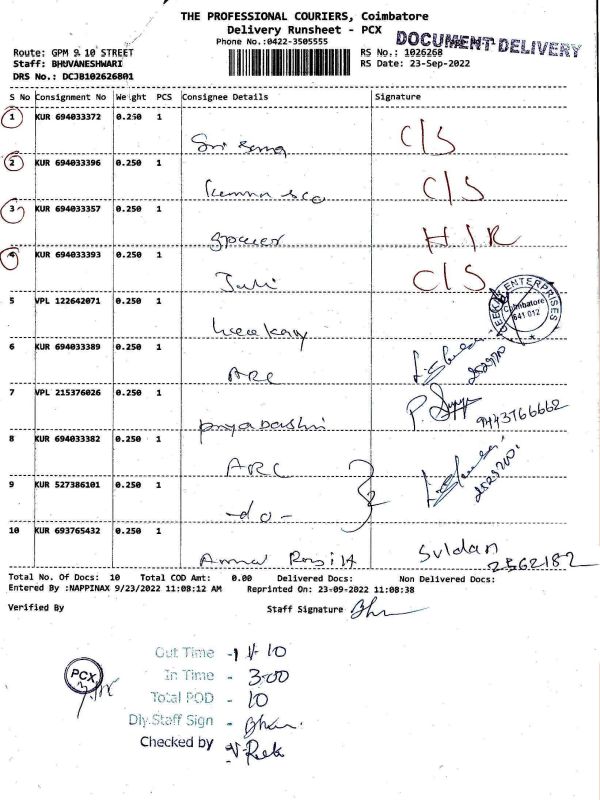 THE PROFESSIONAL COURIERS, Coimbatore
Delivery Runsheet - PCX
Phone No.:0422-3505555
DOCUMENT DELIVERY
Route: GPM 9 10 STREET
RS No.: 1026268
Staff: BHUVANESHWARI
RS Date: 23-Sep-2022
DRS No.: DCJB102626801
S No Consignment No Weight PCS Consignee Details Signature
1 KUR 694033372 0.250 1
C/S
2 KUR 694033396 0.250 1
C/S
3 KUR 694033357 0.250 1
H/R
4 KUR 694033393 0.250 1
C/S
5 VPL 122642071 0.250 1
ENTERPRISES
Coimbatore
641 012
6 KUR 694033389 0.250 1
ARC
7 VPL 215376026 0.250 1
Priyadarshni
9443766662
8 KUR 694033382 0.250 1
ARC
9 KUR 527386101 0.250 1
-do-
10 KUR 693765432 0.250 1
2562182
Total No. Of Docs: 10 Total COD Amt: 0.00 Delivered Docs: Non Delivered Docs:
Entered By :NAPPINAX 9/23/2022 11:08:12 AM Reprinted On: 23-09-2022 11:08:38
Verified By Staff Signature
PCX
Out Time - 11-10
In Time - 3-00
Total POD - 10
Dly.Staff Sign -
Checked by